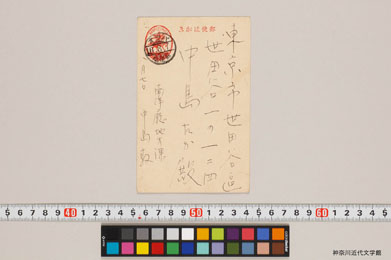 郵便はがき
東京市世田谷区
世田谷一の一二四
中島たか殿
南洋庁地方課
中島敦
月七日
5 6 7 8 9 40 1 2 3 4 5 6 7 8 9 50 1 2 3 4 5 6 7 8 9 60 1 2 3 4 5
神奈川近代文学館